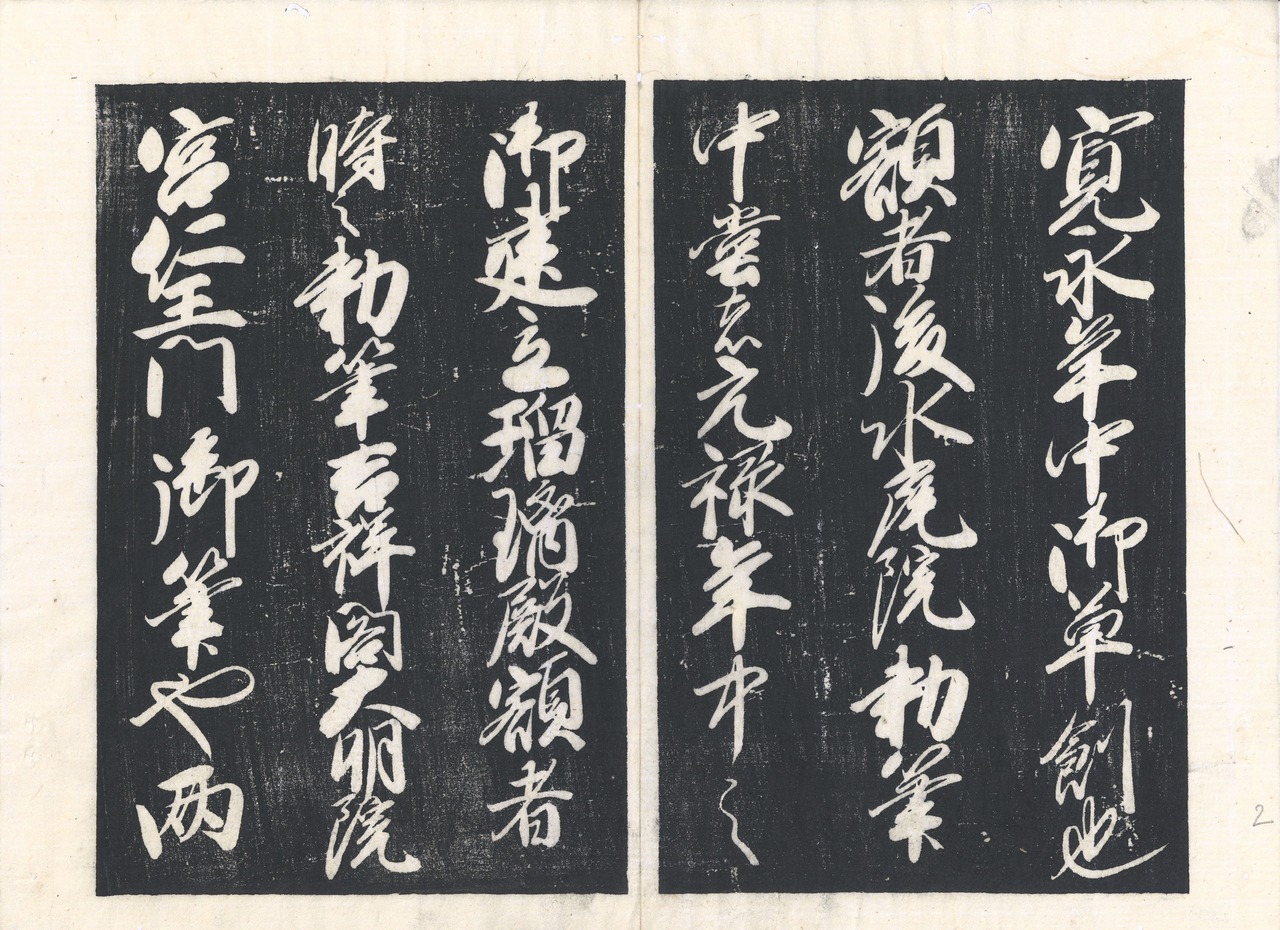 寛永年中御草創也
額者後水尾院勅筆
中堂は元禄年中之
御建立瑠璃殿額者
時之勅筆吉祥閣大明院
宮仁里門御筆や両
2